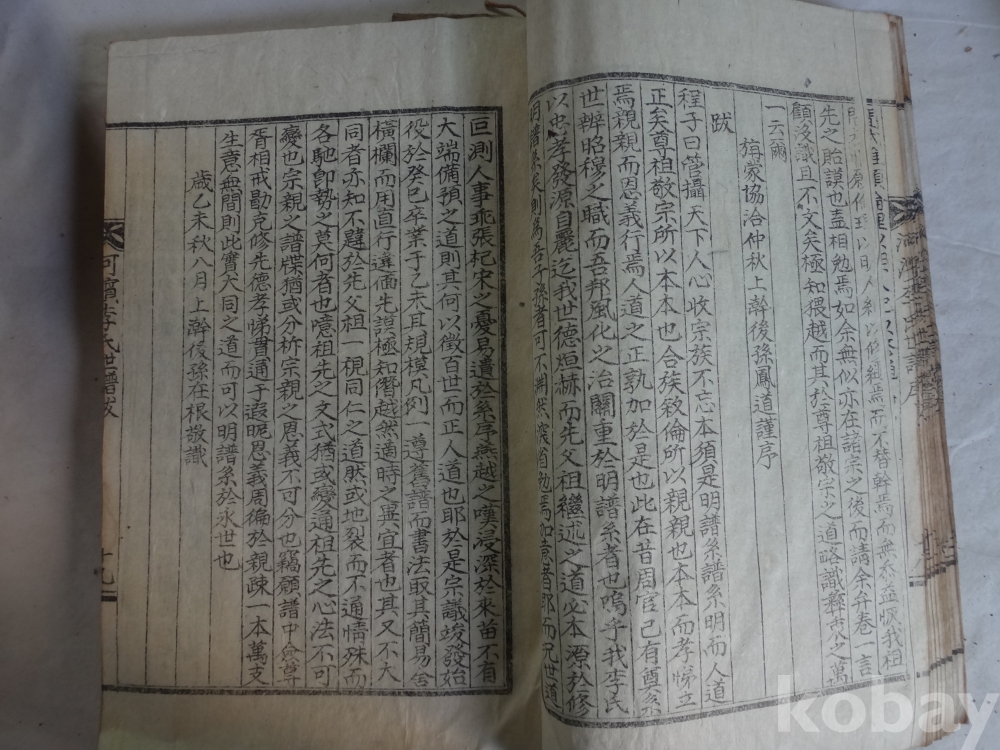 先之貽謨也盍相勉焉如余無似亦在諸宗之後而請余弁卷一言
顧淺識且不文矣極知猥越而其於尊祖敬宗之道略識彝衷之萬
一云爾
旃蒙協洽仲秋上幹後孫鳳道謹序
跋
程子曰管攝天下人心收宗族不忘本須是明譜系譜系明而人道
正矣尊祖敬宗所以本本也合族敘倫所以親親也本本而孝悌立
焉親親而恩義行焉人道之正孰加於是也此在昔周官已有奠系
世辨昭穆之職而吾邦風化之治關重於明譜系者也嗚乎我李氏
以忠孝發源自麗迄我世德烜赫而先父祖繼述之道必本源於修
明譜系矣則為吾子孫者可不惕然察省勉焉加意者耶而況世道
叵測人事乖張杞宋之憂易遺於系序燕越之嘆浸深於來苗不有
大端備預之道則其何以徵百世而正人道也耶於是宗議竣發始
役於癸巳卒業于乙未且規模凡例一遵舊譜而書法取其簡易舍
橫欄而用直行違面先誤極知僭越然適時之異宜者也其又不大
同者亦知不韙於先父祖一視同仁之道然或地裂而不通情殊而
各馳卽勢之莫何者也噫祖先之文式猶或變通祖先之心法不可
變也宗親之譜牒猶或分析宗親之恩義不可分也竊願譜中僉尊
胥相戒勖克修先德孝悌貫通于遐昵恩義周徧於親疎一本萬支
生意無間則此實大同之道而可以明譜系於永世也
歲乙未秋八月上幹後孫在根敬識
河濱李氏世譜跋
十九
kobay